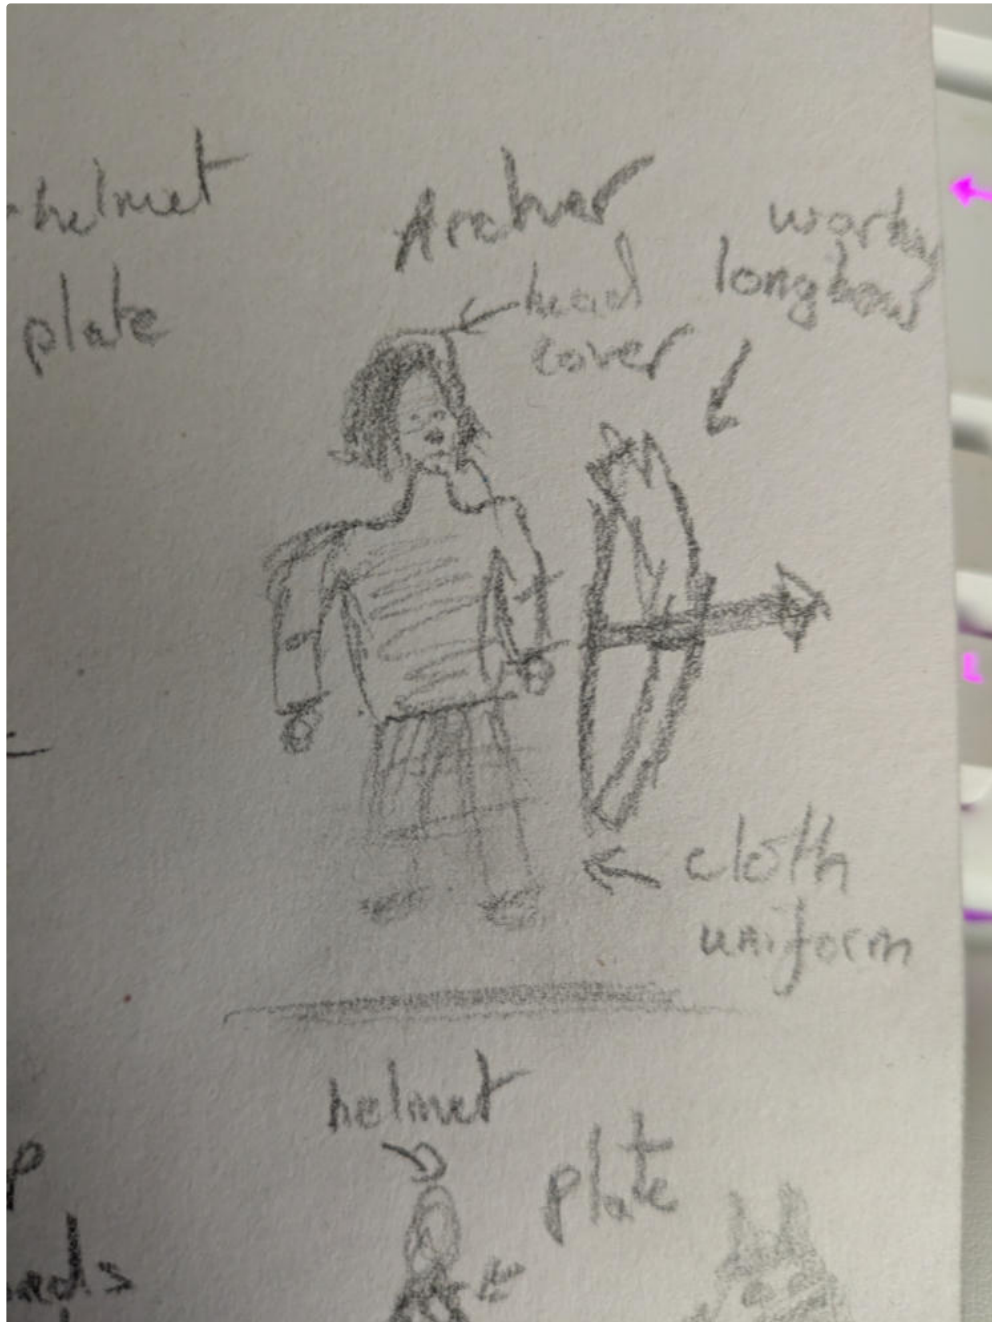 helmet
plate
Archer
head
cover
longbow
cloth
uniform
helmet
plate